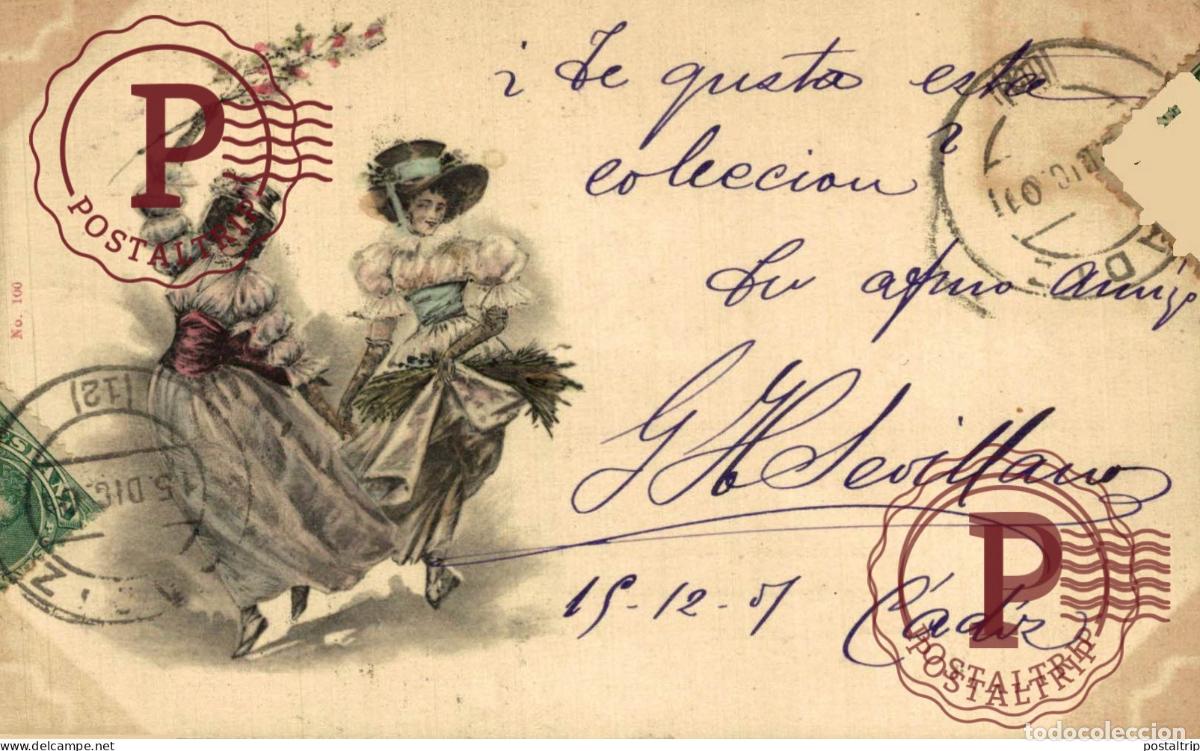 ¿Te gusta esta
coleccion?
Su afmo amigo
G H Sevillano
15-12-01 Cádiz
No. 100
15.DIC.
(12)
DIC.01
P
POSTALTRIP
P
POSTALTRIP
POSTALTRIP
todocoleccion
www.delcampe.net
postaltrip